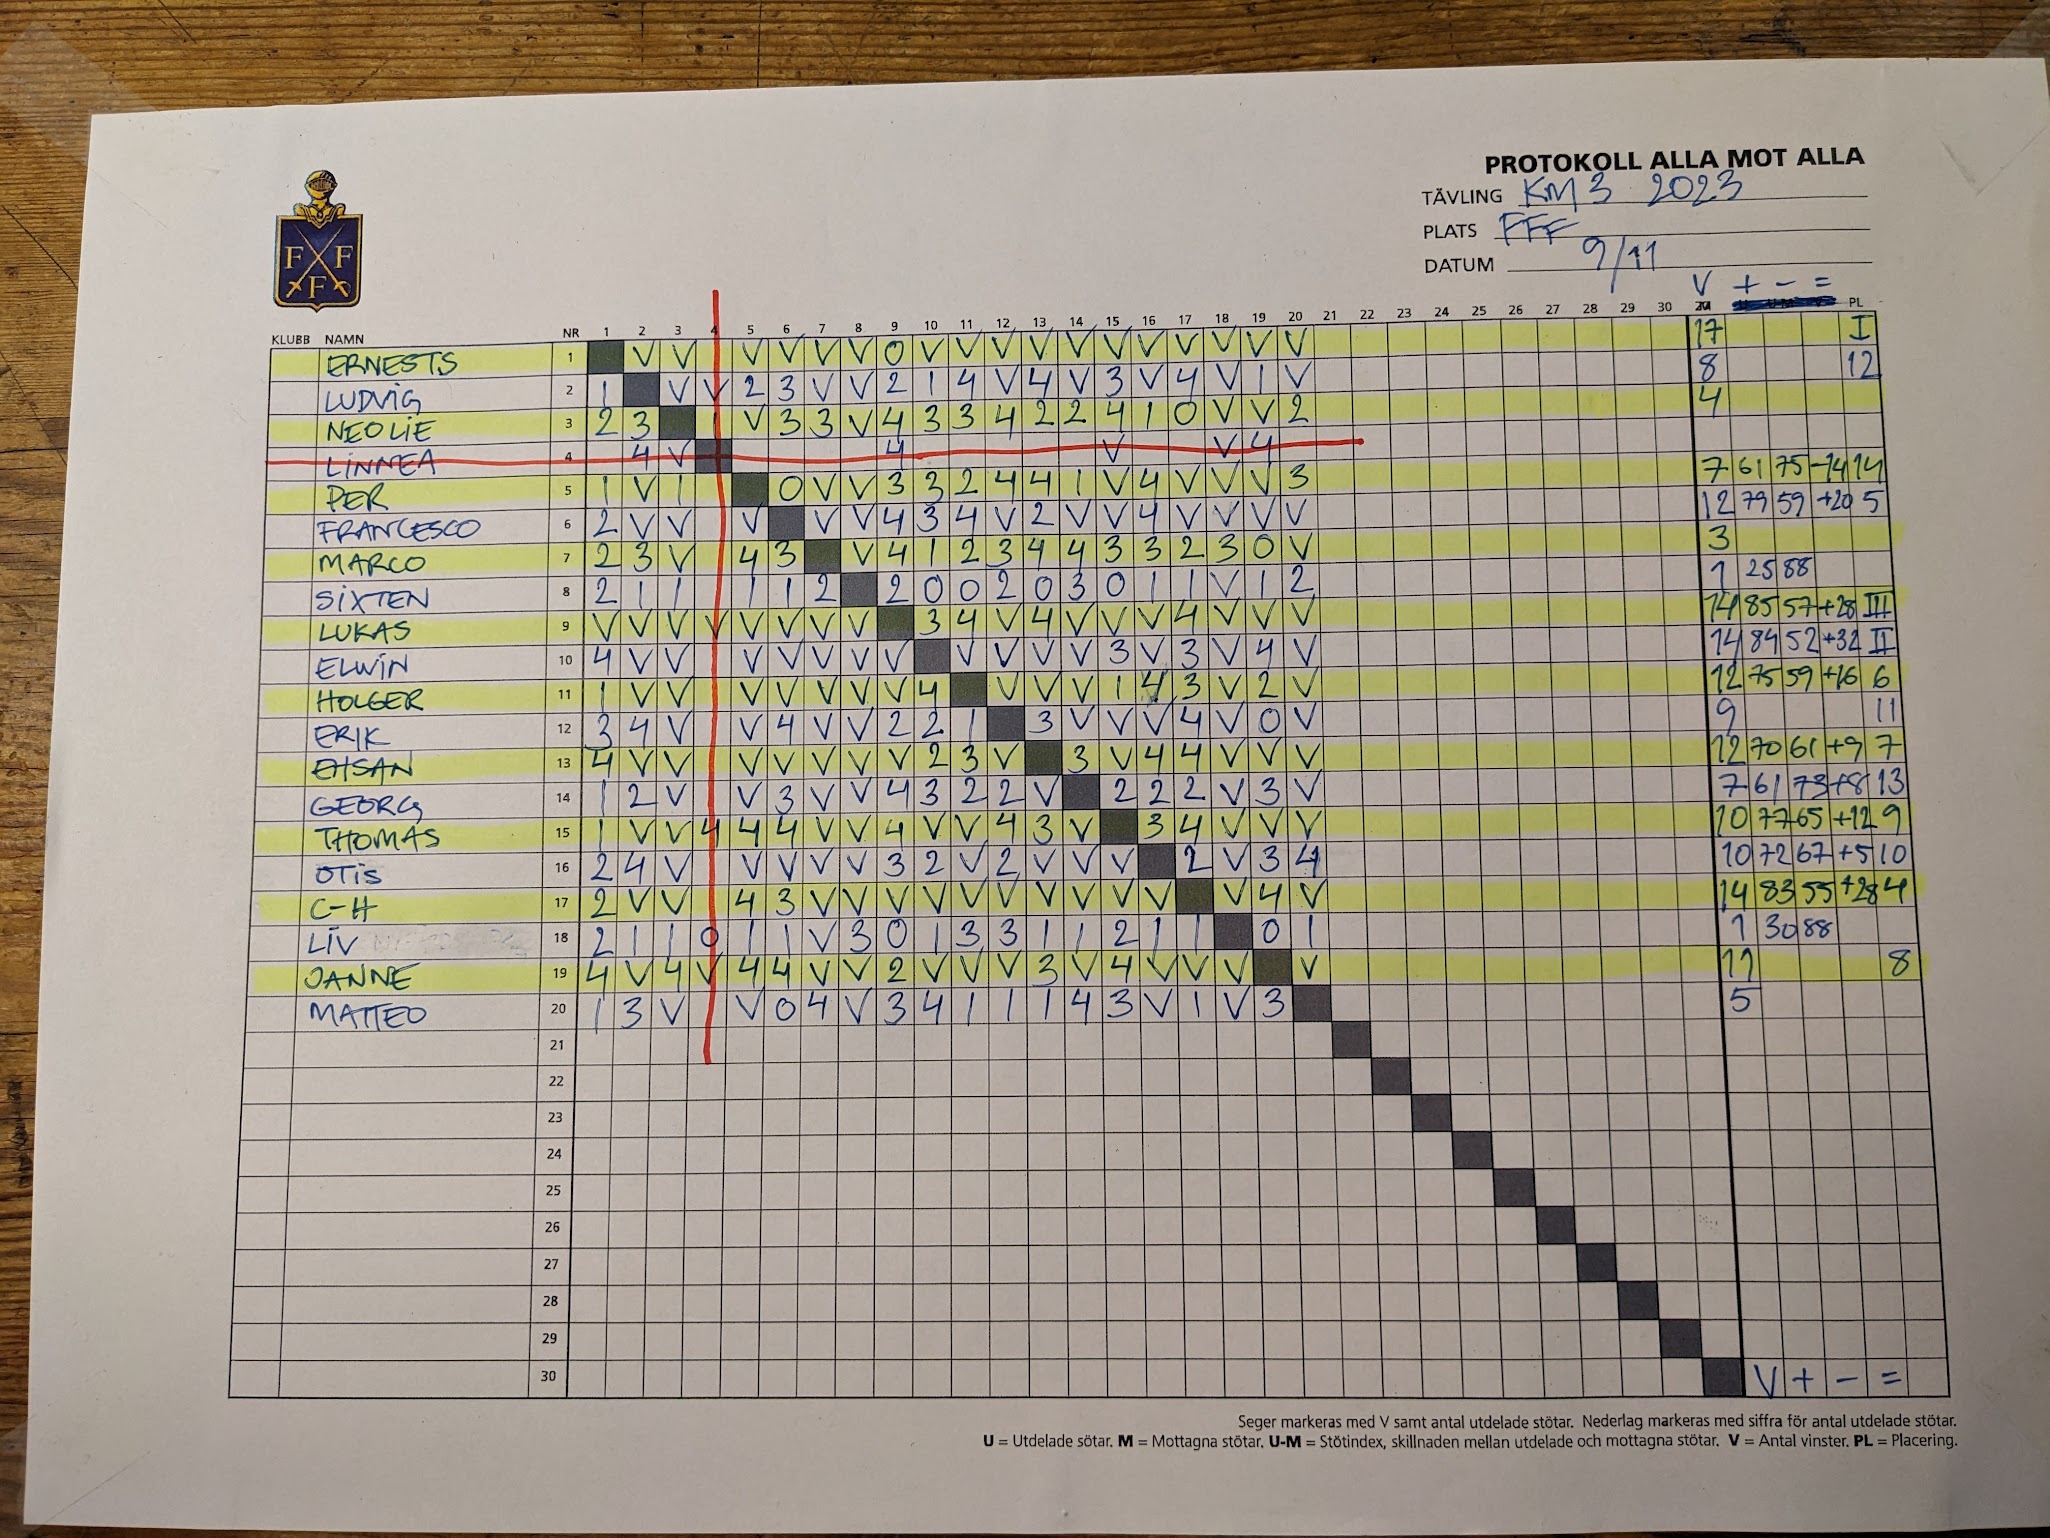 PROTOKOLL ALLA MOT ALLA
TÄVLING KM 3 2023
PLATS FFF
DATUM 9/11
F F F
V + - =
KLUBB NAMN NR 1 2 3 4 5 6 7 8 9 10 11 12 13 14 15 16 17 18 19 20 21 22 23 24 25 26 27 28 29 30 PL
ERNESTS 1 V V V V V V 0 V V V V V V V V V V V 17 I
LUDVIG 2 1 V V 2 3 V V 2 1 4 V 4 V 3 V 4 V 1 V 8 12
NEOLIE 3 2 3 1 V 3 3 V 4 3 3 4 2 2 4 1 0 V V 2 4
LINNEA 4 4 V 4 V V 4
PER 5 1 V 1 0 V V 3 3 2 4 4 1 V 4 V V V 3 7 61 75 -14 14
FRANCESCO 6 2 V V V V V 4 3 4 V 2 V V 4 V V V V 12 79 59 +20 5
MARCO 7 2 3 V 4 3 V 4 1 2 3 4 4 3 3 2 3 0 V 3
SIXTEN 8 2 1 1 1 1 2 2 0 0 2 0 3 0 1 1 V 1 2 1 25 88
LUKAS 9 V V V V V V V V 3 4 V 4 V V V 4 V V V 14 85 57 +28 III
ELWIN 10 4 V V V V V V V V V V V 3 V 3 V 4 V 14 84 52 +32 II
HOLGER 11 1 V V V V V V V 4 V V V 1 4 3 V 2 V 12 75 59 +16 6
ERIK 12 3 4 V V 4 V V 2 2 1 3 V V V 4 V 0 V 9 11
EHSAN 13 4 V V V V V V V 2 3 V 3 V 4 4 V V V 12 70 61 +9 7
GEORG 14 1 2 V V 3 V V 4 3 2 2 V 2 2 2 V 3 V 7 61 73 +8 13
THOMAS 15 1 V V 4 4 4 V V 4 V V 4 3 V 3 4 V V V 10 77 65 +12 9
OTIS 16 2 4 V V V V V 3 2 V 2 V V V 2 V 3 4 10 72 67 +5 10
C-H 17 2 V V 4 3 V V V V V V V V V V V 4 V 14 83 55 +28 4
LIV 18 2 1 1 0 1 1 V 3 0 1 3 3 1 1 2 1 1 0 1 1 30 88
JANNE 19 4 V 4 V 4 4 V V 2 V V V 3 V 4 V V V V 11 8
MATTEO 20 1 3 V V 0 4 V 3 4 1 1 1 4 3 V 1 V 3 5
21
22
23
24
25
26
27
28
29
30 V + - =
Seger markeras med V samt antal utdelade stötar. Nederlag markeras med siffra för antal utdelade stötar.
U = Utdelade sötar. M = Mottagna stötar. U-M = Stötindex, skillnaden mellan utdelade och mottagna stötar. V = Antal vinster. PL = Placering.